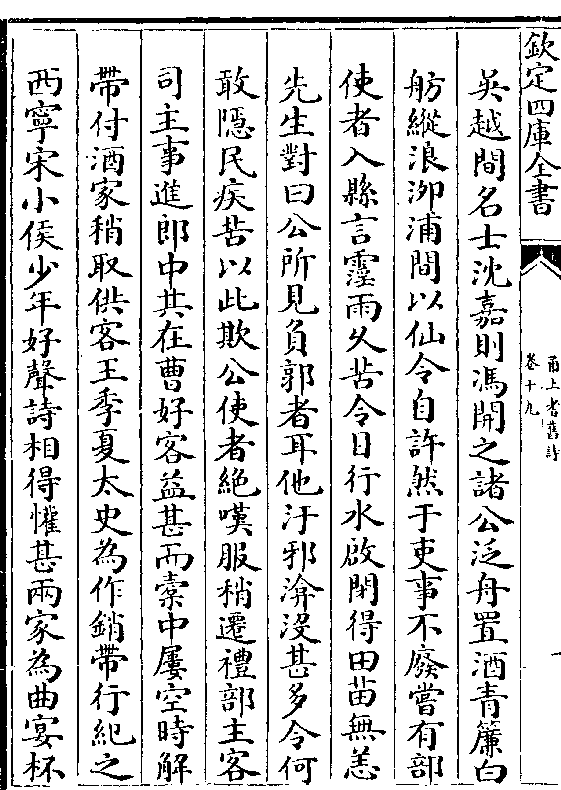 欽定四庫全書
甬上耆舊詩
卷十九
吳越間名士沈嘉則馮開之諸公泛舟置酒青簾白
舫縱浪泖浦間以仙令自許然于吏事不廢嘗有部
使者入縣言霪雨久苦令日行水啟閉得田苗無恙
先生對曰公所見負郭者耳他汙邪渰沒甚多令何
敢隱民疾苦以此欺公使者絶嘆服稍遷禮部主客
司主事進郎中其在曹好客益甚而橐中屢空時解
帶付酒家稍取供客王季夏太史為作銷帶行紀之
西寧宋小侯少年好聲詩相得懽甚兩家為曲宴杯